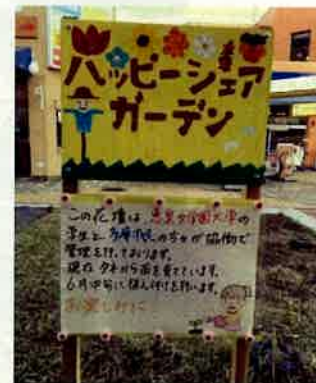 ハッピーシェア
ガーデン
この花壇は、恵泉女学園大学の
学生と多摩市民の方々が協働で
管理を行っております。
現在タネから苗を育てています。
6月中旬に植え付けを行います。
お楽しみに